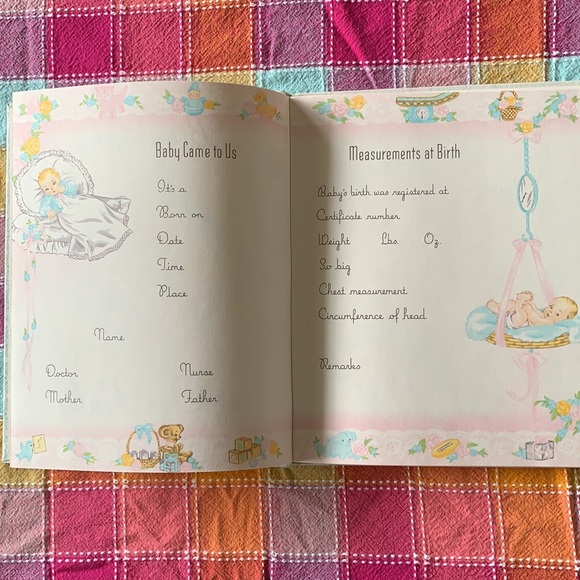 Baby Came to Us
It's a
Born on
Date
Time
Place
Name
Doctor Nurse
Mother Father
Measurements at Birth
Baby's birth was registered at
Certificate number
Weight Lbs. Oz.
So big
Chest measurement
Circumference of head
Remarks